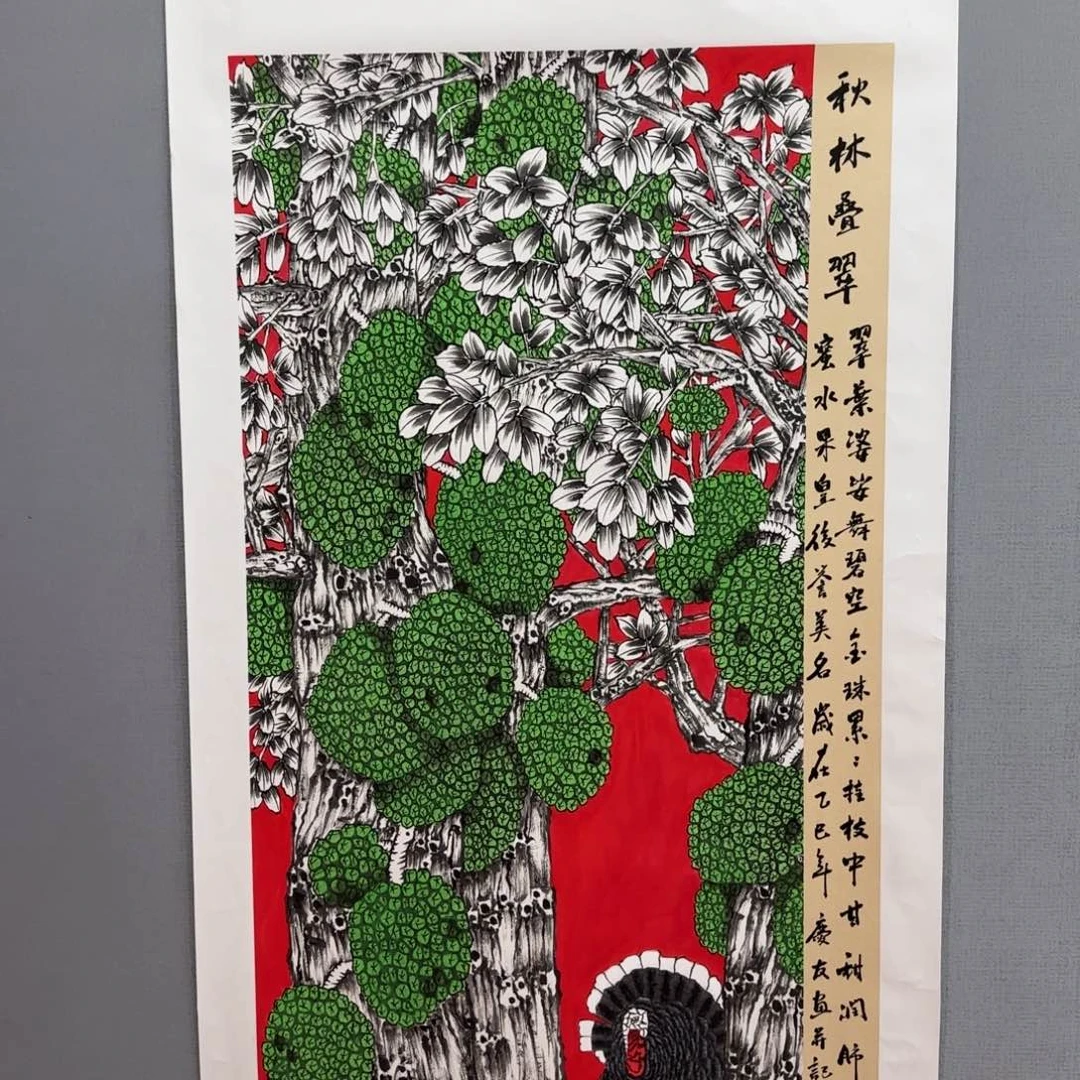 秋林叠翠
翠葉婆娑舞碧空金珠累〻挂枝中甘甜潤肺
蜜水果皇後誉美名歲在乙巳年慶友畫并記